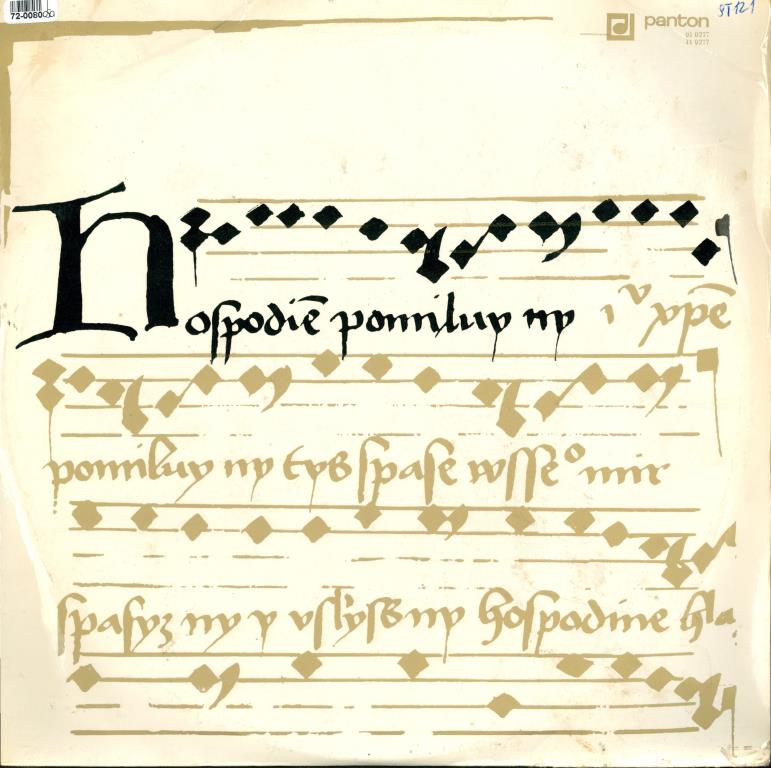 72-0080
ST 121
panton
01 0277
11 0277
Hospodiē pomiluy ny i v xpē
pomiluy ny tys spase wsseº mir
spasyz ny y vslyss ny hospodine hla